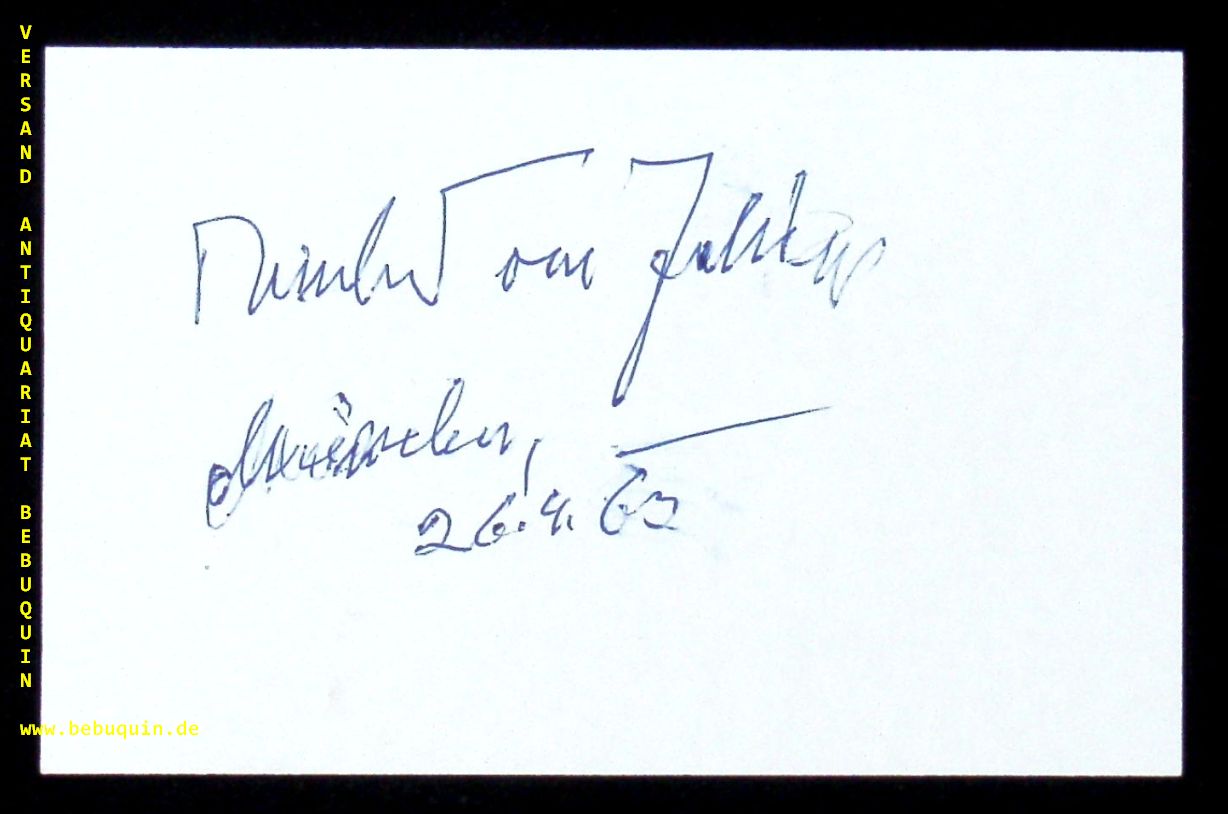 VERSAND ANTIQUARIAT BEBUQUIN
Meinhard von Zallinger
München,
26.4.63
www.bebuquin.de